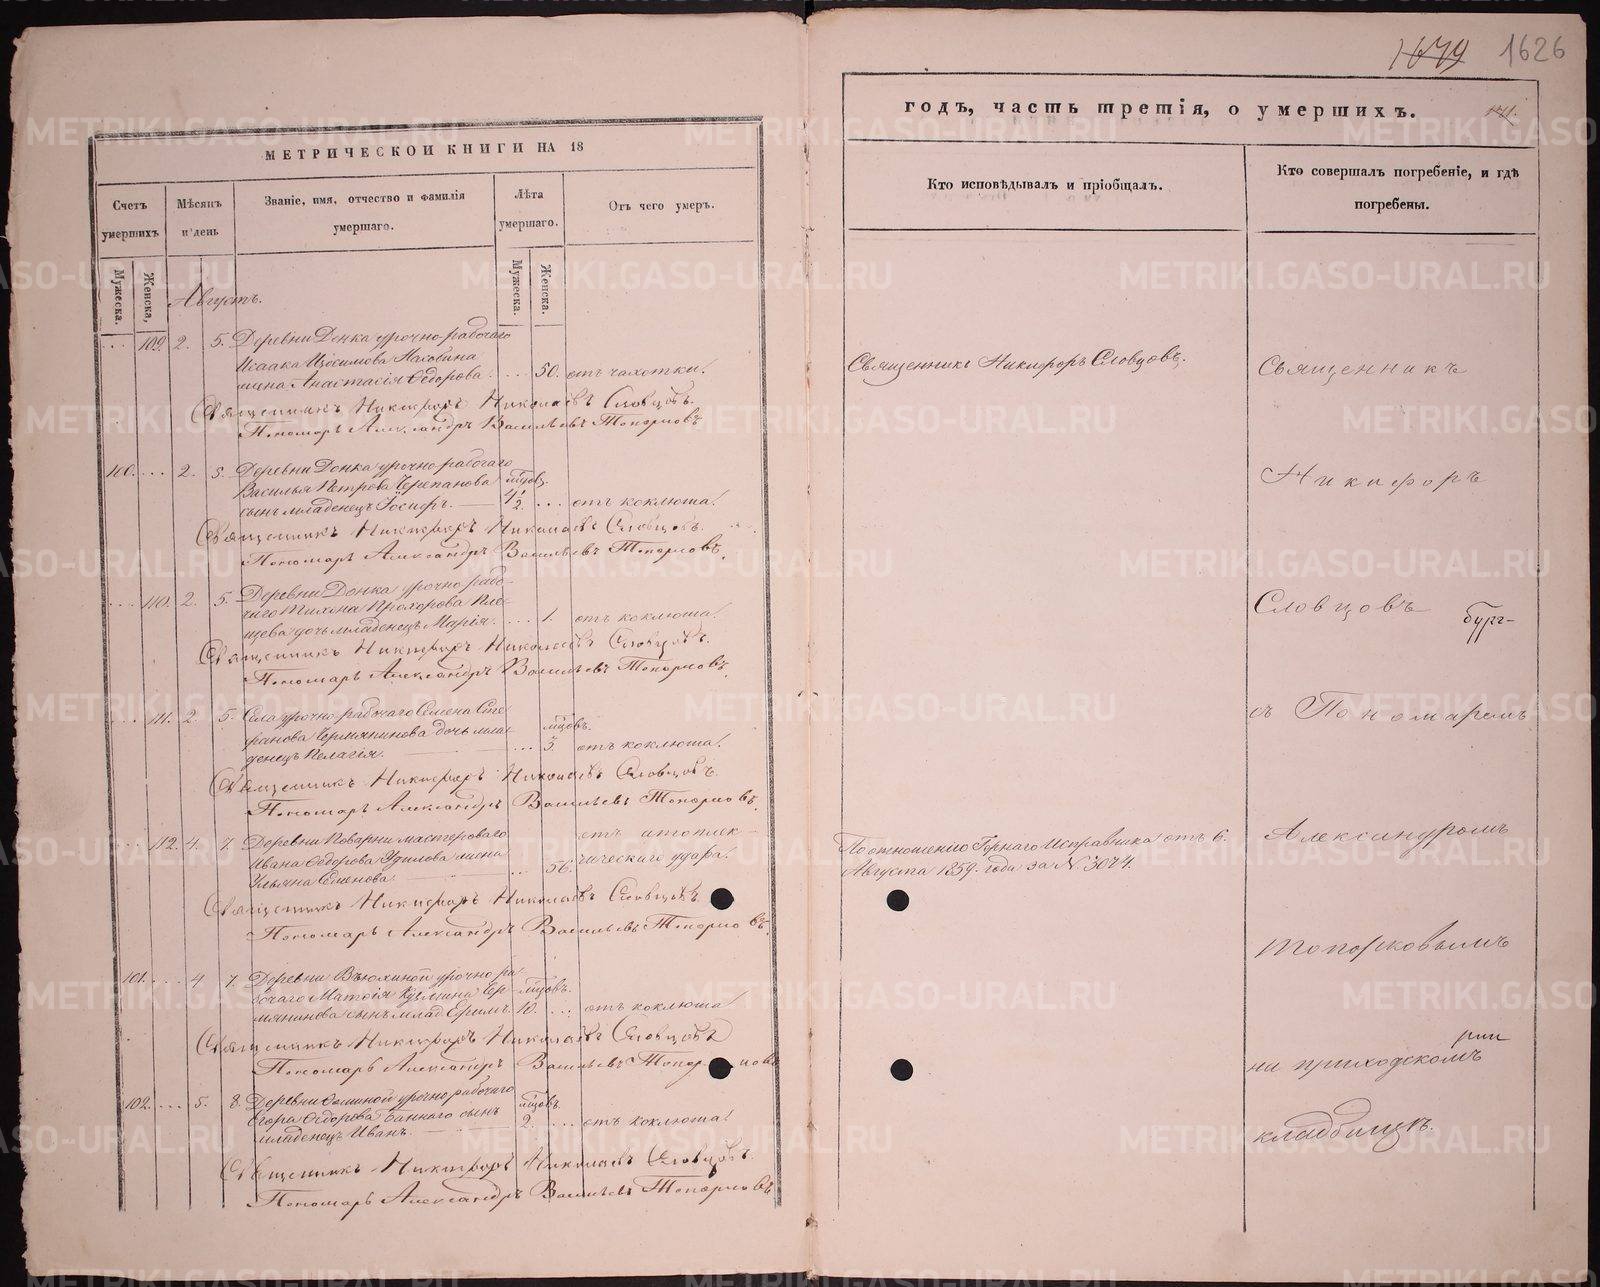 1679 1626
МЕТРИЧЕСКОЙ КНИГИ НА 18
годъ, часть третія, о умершихъ.
Счетъ умершихъ
Мѣсяцъ и день
Званіе, имя, отчество и фамилія умершаго.
Лѣта умершаго.
Отъ чего умеръ.
Кто исповѣдывалъ и пріобщалъ.
Кто совершалъ погребеніе, и гдѣ погребены.
Мужеска. Женска,
Мужеска. Женска.
Августъ.
109. 2. 5. Деревни Донка урочно-рабочаго
Исаака Изосимова Пахобина
жена Анастасія Ѳедорова. ... 50. отъ чахотки.
Священникъ Никифоръ Николаевъ Словцовъ.
Пономарь Александръ Васильевъ Топорковъ
100. ... 2. 5. Деревни Донка урочно-рабочаго
Василья Петрова Черепанова мѣсцов.
сынъ младенецъ Іосифъ. 4 1/2. ... отъ коклюша.
Священникъ Никифоръ Николаевъ Словцовъ.
Пономарь Александръ Васильевъ Топорковъ.
... 110. 2. 5. Деревни Донка урочно-рабо-
чаго Тихона Прохорова Пле-
щева дочь младенецъ Марія. ... 1. отъ коклюша.
Священникъ Никифоръ Николаевъ Словцовъ.
Пономарь Александръ Васильевъ Топорковъ.
... 111. 2. 5. Села урочно-рабочаго Семена Сте-
фанова Чермянинова дочь мла- мѣсцовъ.
денецъ Пелагія. ... 5. отъ коклюша.
Священникъ Никифоръ Николаевъ Словцовъ.
Пономарь Александръ Васильевъ Топорковъ.
... 112. 4. 7. Деревни Поварни мастероваго
Ивана Ѳедорова Удилова жена
Ульяна Семенова. ... 56. отъ апоплек-
ческаго удара.
Священникъ Никифоръ Николаевъ Словцовъ.
Пономарь Александръ Васильевъ Топорковъ.
101. ... 4. 7. Деревни Вьюхиной урочно-ра-
бочаго Матѳія Кузмина Чер- мѣсцовъ.
мянинова сынъ млад. Ефимъ. 10. ... отъ коклюша.
Священникъ Никифоръ Николаевъ Словцовъ
Пономарь Александръ Васильевъ Топорковъ
102. ... 5. 8. Деревни Фоминой урочно-рабочаго
Егора Ѳедорова Баннаго сынъ мѣсцовъ.
младенецъ Иванъ. 2. ... отъ коклюша.
Священникъ Никифоръ Николаевъ Словцовъ.
Пономарь Александръ Васильевъ Топорковъ
Священникъ Никифоръ Словцовъ.
По отношенію Горнаго Исправника отъ 6.
Августа 1859. года за N. 3074.
Священникъ
Никифоръ
Словцовъ
съ Пономаремъ
Александромъ
Топорковымъ
на приходскомъ
кладбищѣ.
METRIKI.GASO-URAL.RU